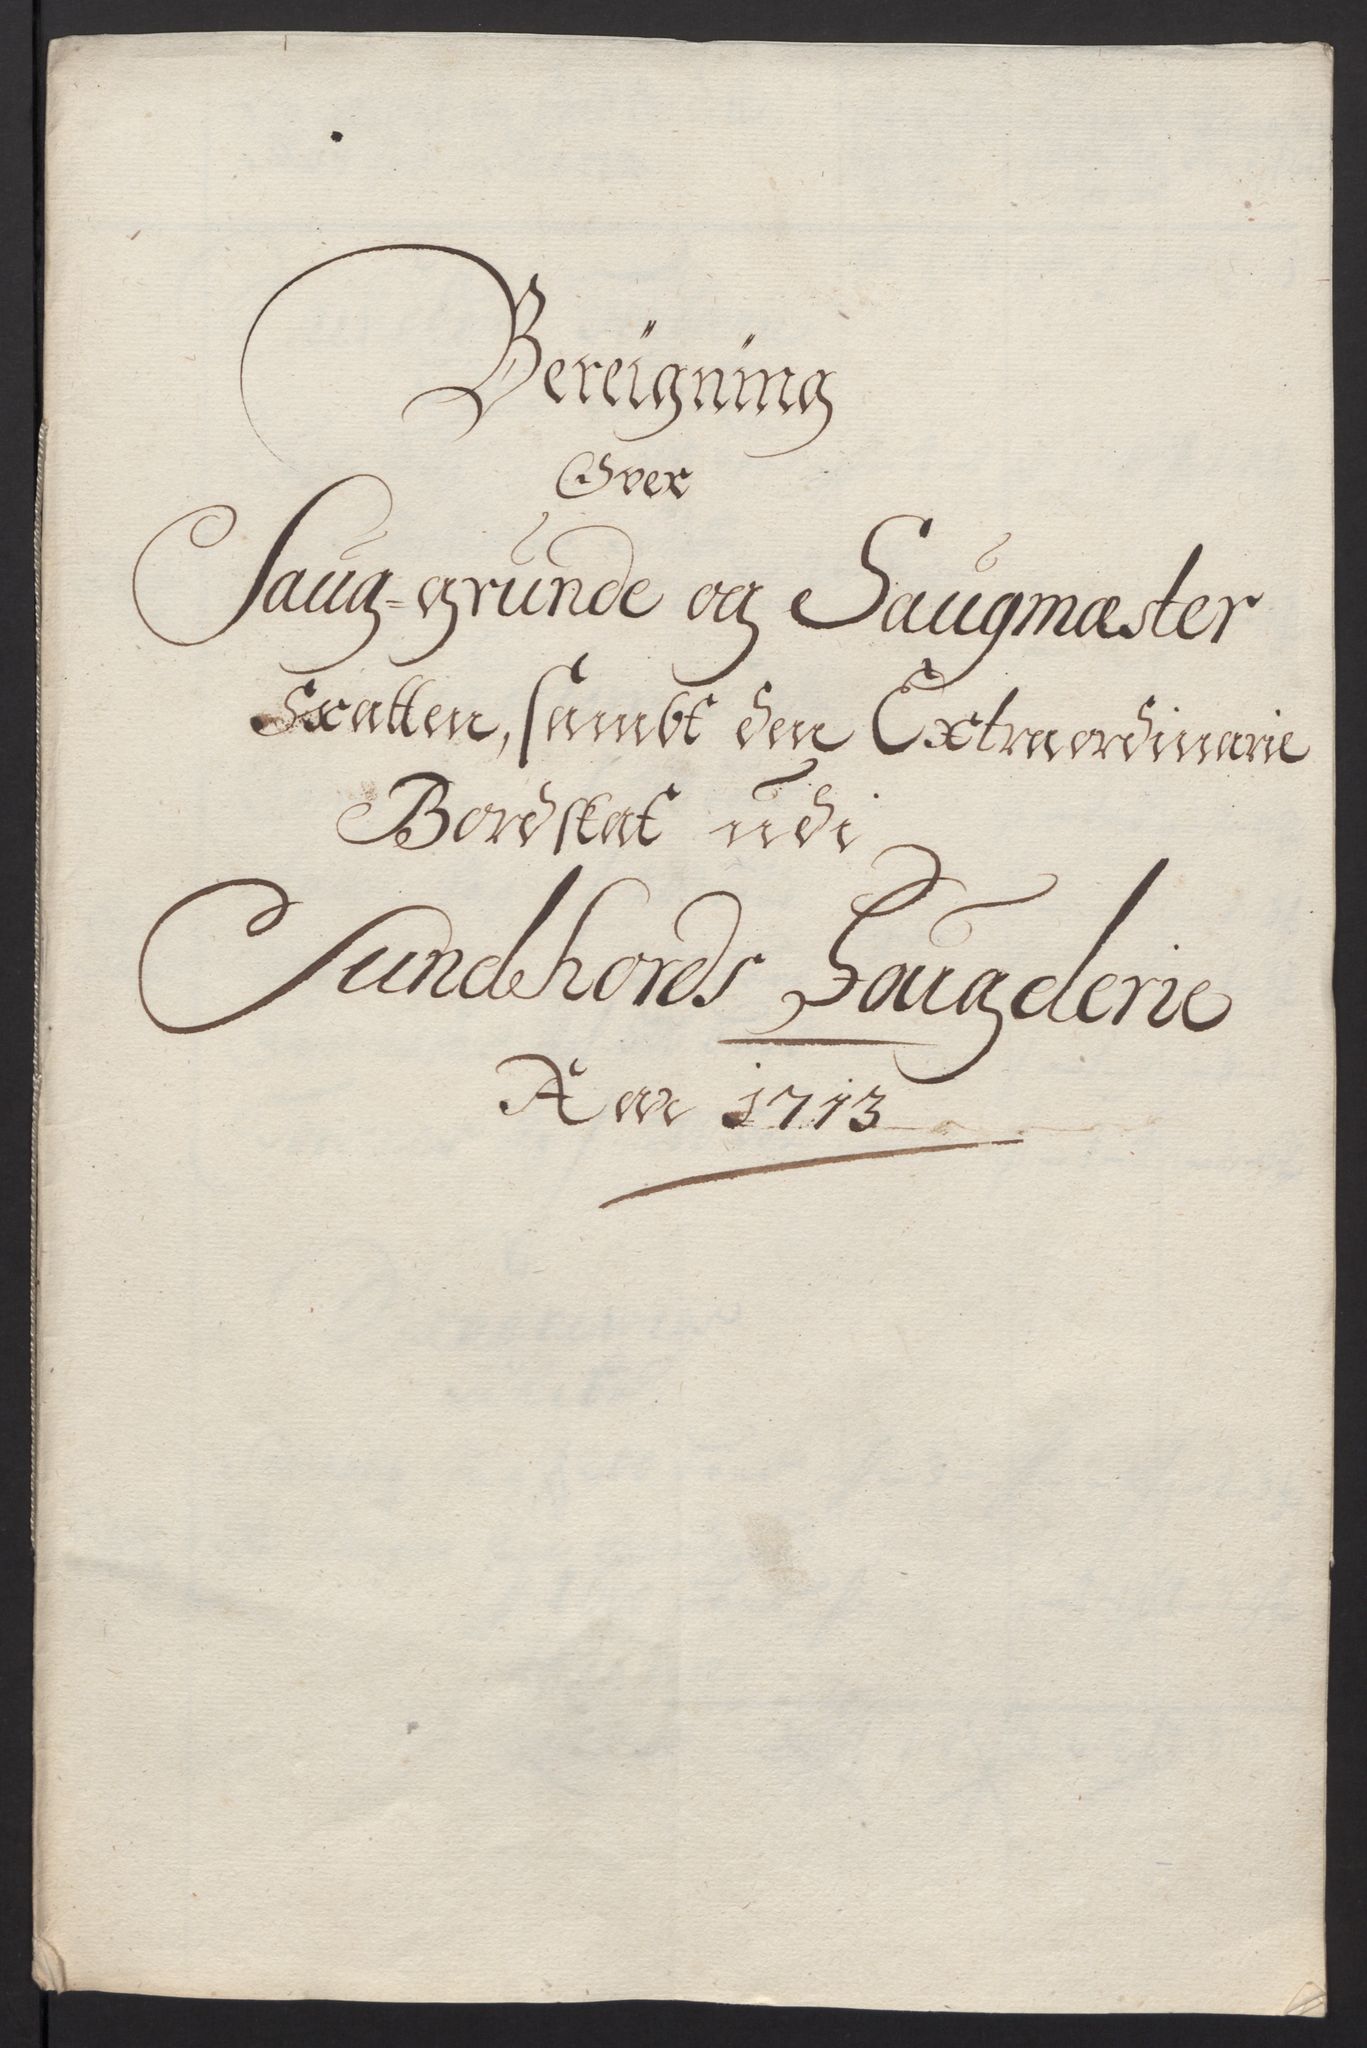 Bereigning
Over
Saug-grunde og Saugmæster
Skatten, sambt den Extraordinarie
Bordskat udi
Sundhords Fougderie
1713